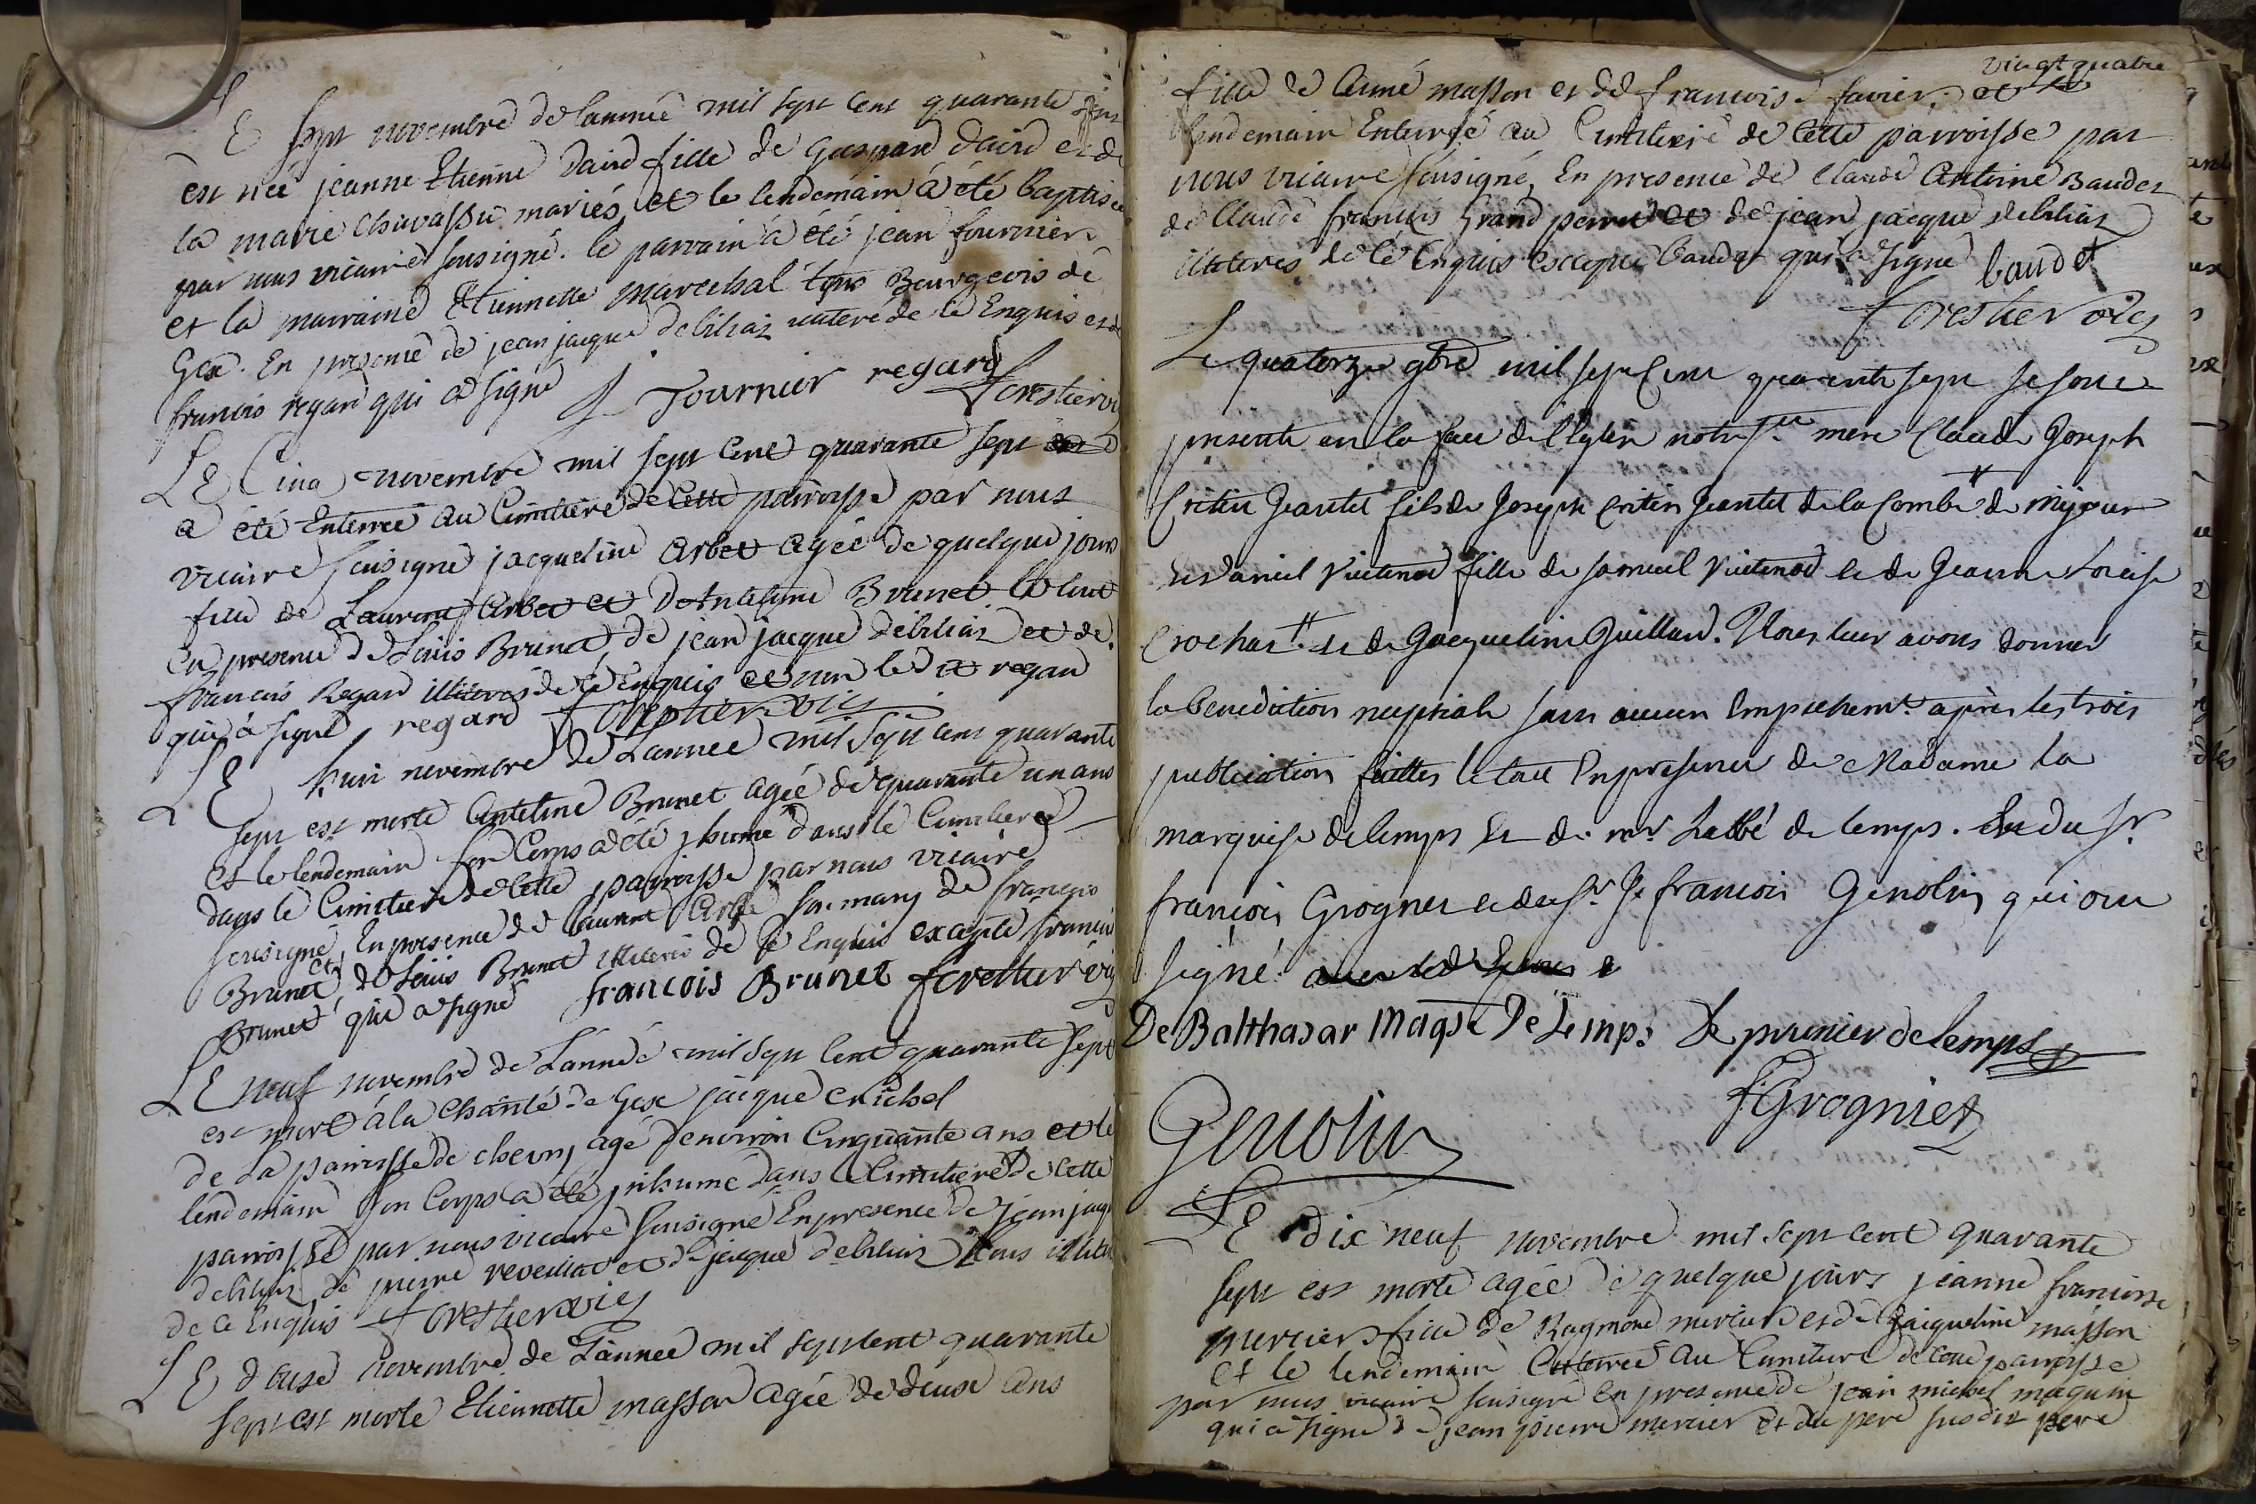 LE sept novembre de lannée mil sept cent quarante sept
est née jeanne Etienne David fille de Gaspard David et de
la marie Chavassu mariés, et le lendemain à été baptisée
par nous vicaire sousigné. le parrain à été jean fournier
et la marraine Etiennette marechal tous Bourgeois de
Gex. En presence de jean jacque debiliaz illiteré de ce Enquis et de
francois regard qui a signé J Fournier regard forestier vic
LE Cinq novembre mil sept cent quarante sept
a été Enterrée au Cimitiere de Cette parroisse par nous
vicaire sousigné jacqueline Arbet agée de quelque jours
fille de Laurent Arbet et D'Antelme Brunet le tout
en presence de Louis Brunet, de jean jacque debiliaz et de
francois Regard illiteres de ce Enquis et non led it regard
qui à signé regard forestier vic
LE huit novembre de Lannée mil sept cent quarante
sept est morte Anteline Brunet agée de quarante un ans
et le lendemain son Corps a été jnhumé dans le Cimitiere
dans le Cimitiere de Cette parroisse par nous vicaire
sousigné, En presence de laurent Arbet son mary de francois
Brunet, et de Louis Brunet illiterés de ce Enquis excepté francois
Brunet qui a signé francois Brunet forestier vic
LE neuf novembre de Lannée mil sept cent quarante sept
est mort à la Charité de Gex jacque Crichel
de La parroisse de chevry agé denviron Cinquante ans et le
lendemain son Corps a été jnhumé dans le Cimitiere de Cette
parroisse par nous vicaire sousigné En presence de jean jacque
debiliaz de pierre reveillat et de jacque debiliaz tous illiteres
de ce Enquis forestier vic
LE douse novembre de Lannee mil septcent quarante
sept est morte Etiennette masson agée de deux ans
vingt quatre
fille de Aimé masson et de francoise favier, et le
lendemain Enterrée au Cimitiere de Cette parroisse par
nous vicaire sousigné, En presence de Claude Antoine Baudet
de Claude francois Grand perret et de jean jacque debiliaz
illiteres de ce Enquis Excepté baudet qui a signé baudet
forestier vic
Le quatorze 9bre mil sept Cent quarente sept se sont
presenté en la face de l'Eglise notre Ste mere Claude Joseph
Critin Jeantet fils de Joseph Critin Jeantet de la Combe de Mijoux
et Daniel Vuitenod fille de Samuel Vuitenod et de Jeanne Louise
Crochat et de Jacqueline Quillard. Nous leur avons donner
la Benediction nuptiale sans aucun Empechemt. après les trois
publication faittes le tout En presence de Madame la
marquise de lemps Et de mr. Labbé de lemps. Et du Sr.
françois Grognier et du Sr. Je francois Genolin qui ont
signé
De Balthasar Maqse De Lemps De prunier de lemps
f: Grogniet
Genolin
LE dix neuf novembre mil sept cent quarante
sept est morte agée de quelque jours jeanne francoise
mercier fille de Raymond mercier et de jacqueline masson
et le lendemain Enterrée au Cimitiere de cette parroisse
par nous vicaire sousigné En presence de jean michel maguin
qui à signé de jean pierre mercier Et du pere susdit pere